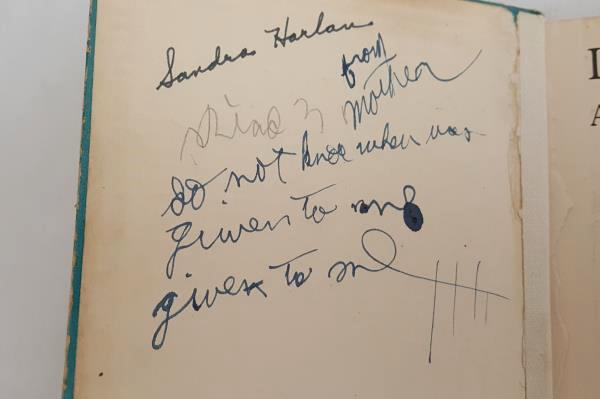 Sandra Harlan
from
Mother
do not knee when was
given to me
given to me